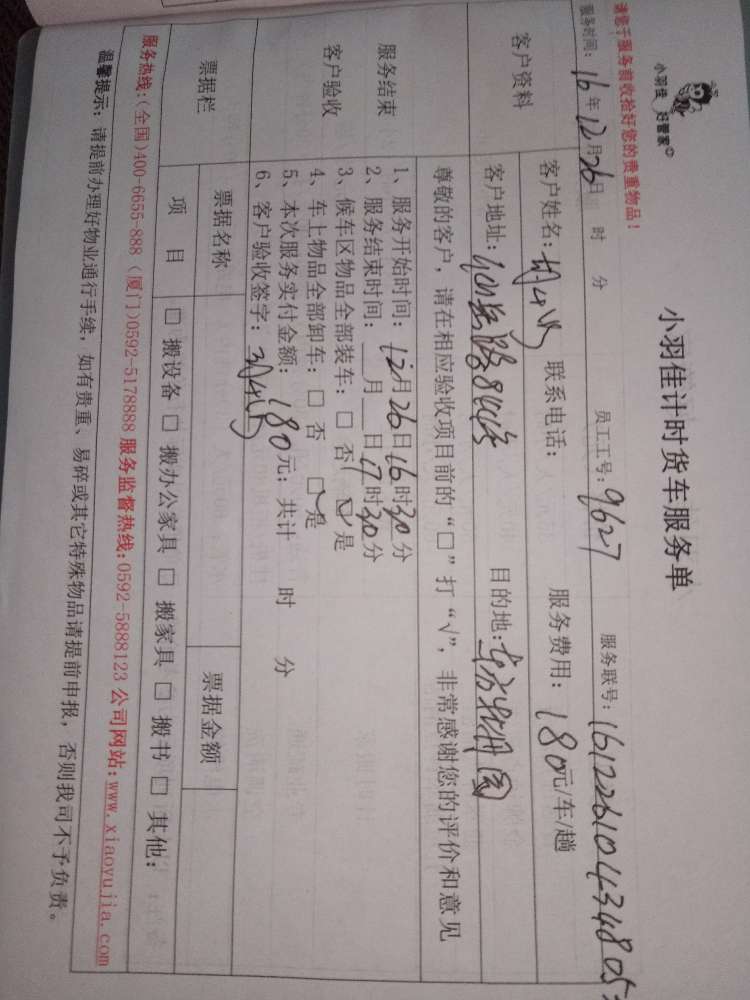 小羽佳 好管家
小羽佳计时货车服务单
请您于服务前收拾好您的贵重物品！
服务时间：16年12月26日 时 分 员工工号：9627 服务联号：16122610434805
客户资料
客户姓名： 联系电话： 服务费用：180元/车/趟
客户地址： 目的地：
尊敬的客户，请在相应验收项目前的“□”打“√”，非常感谢您的评价和意见
服务结束
客户验收
1、服务开始时间：12月26日16时30分
2、服务结束时间： 月 日17时30分
3、候车区物品全部装车：□ 否 ☑ 是
4、车上物品全部卸车：□ 否 ☑ 是
5、本次服务实付金额：180元；共计 时 分
6、客户验收签字：
票据栏
票据名称 票据金额
项 目 □ 搬设备 □ 搬办公家具 □ 搬家具 □ 搬书 □ 其他：
服务热线：(全国)400-6655-888 (厦门)0592-5178888 服务监督热线：0592-5888123 公司网站：www.xiaoyujia.com
温馨提示：请提前办理好物业通行手续，如有贵重、易碎或其它特殊物品请提前申报，否则我司不予负责。